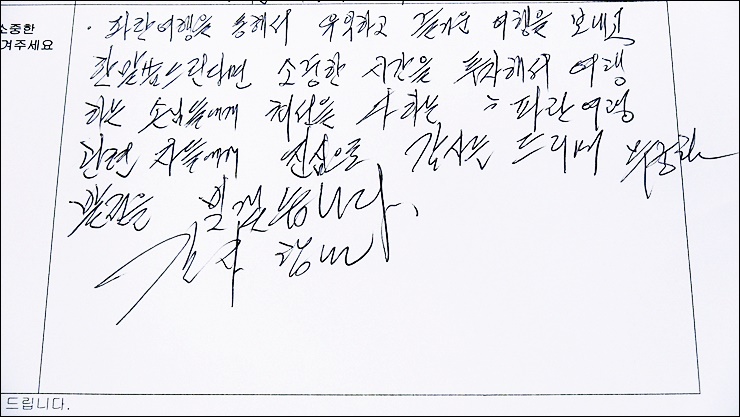 소중한
겨주세요
· 파란여행을 통해서 유익하고 즐거운 여행을 보내고
한말씀드린다면 소중한 시간을 투자해서 여행
하는 손님들에게 최선을 다하는 파란여행
관련 자들에게 진심으로 감사를 드리며 무궁한
발전을 빌겠습니다.
감사 합니다
드립니다.